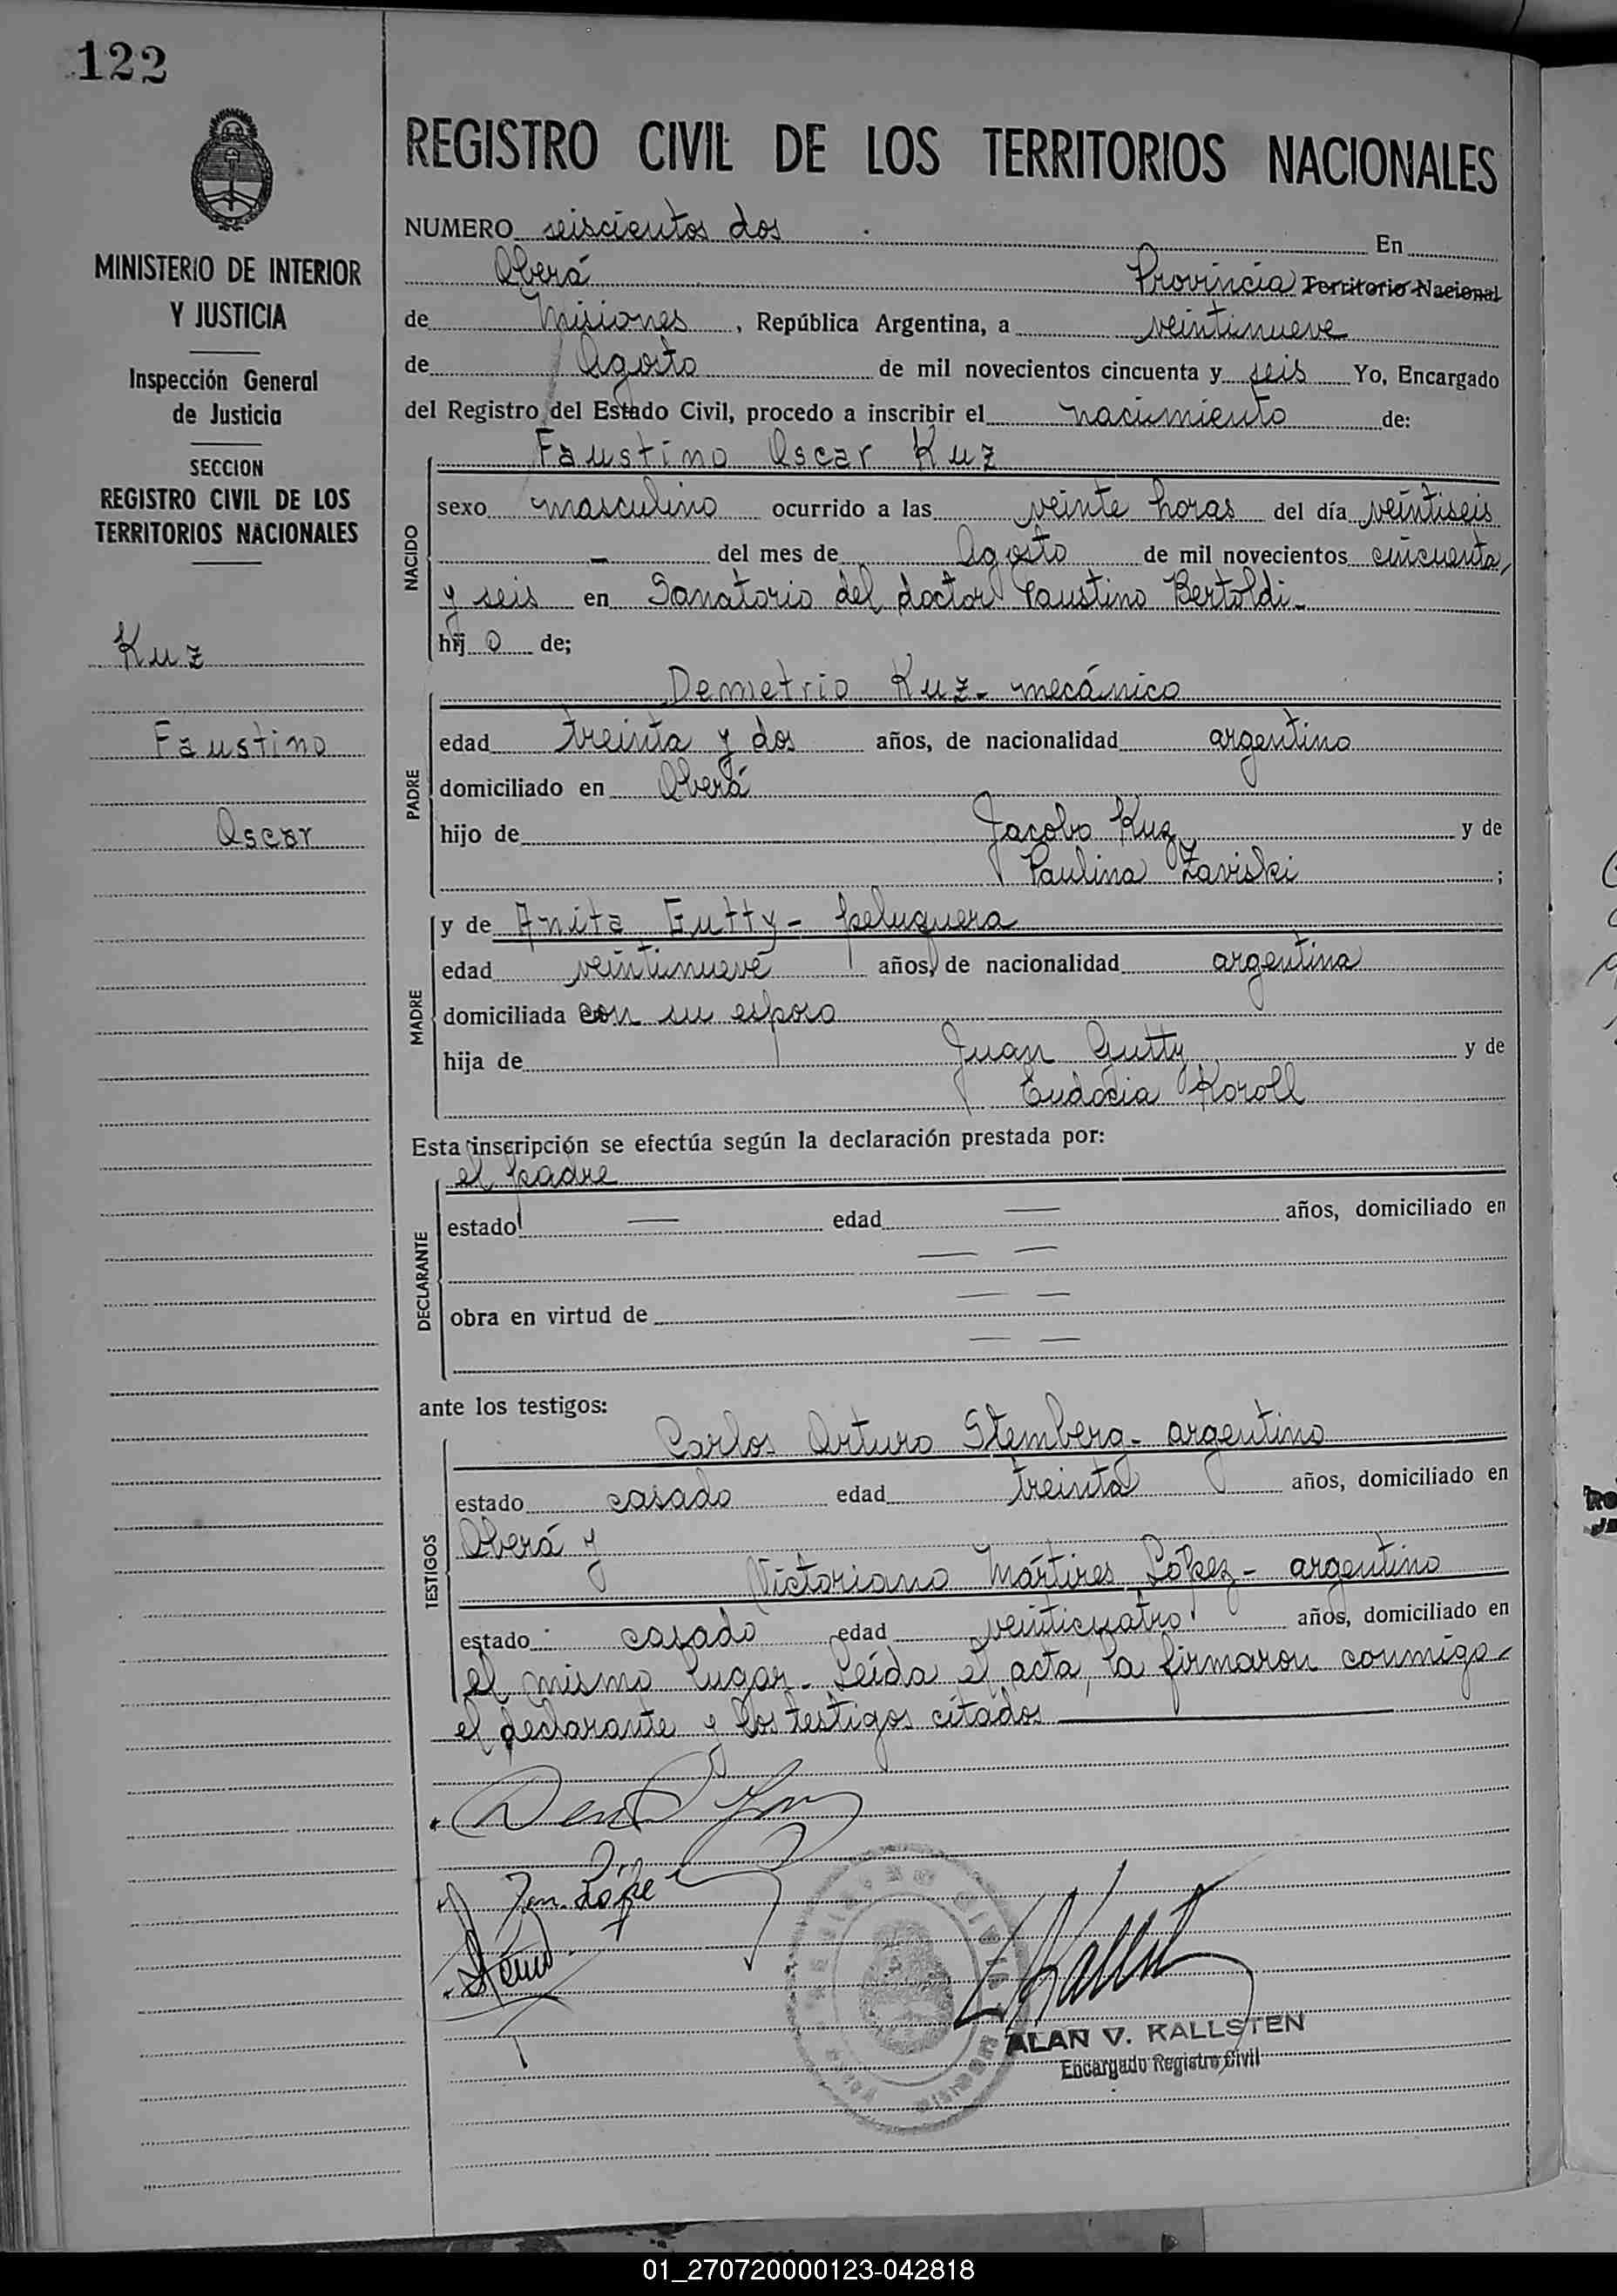 122
MINISTERIO DE INTERIOR
Y JUSTICIA
Inspección General
de Justicia
SECCION
REGISTRO CIVIL DE LOS
TERRITORIOS NACIONALES
Kuz
Faustino
Oscar
REGISTRO CIVIL DE LOS TERRITORIOS NACIONALES
NUMERO seiscientos dos En
Oberá Provincia Territorio Nacional
de Misiones, República Argentina, a veintinueve
de Agosto de mil novecientos cincuenta y seis Yo, Encargado
del Registro del Estado Civil, procedo a inscribir el nacimiento de:
Faustino Oscar Kuz
NACIDO
sexo masculino ocurrido a las veinte horas del día veintiseis
- del mes de Agosto de mil novecientos cincuenta
y seis en Sanatorio del doctor Faustino Bertoldi-
hij o de;
PADRE
Demetrio Kuz- mecánico
edad treinta y dos años, de nacionalidad argentino
domiciliado en Oberá
hijo de Jacobo Kuz y de
Paulina Zaviski;
MADRE
y de Anita Gutty- peluquera
edad veintinueve años, de nacionalidad argentina
domiciliada con su esposo
hija de Juan Gutty y de
Eudocia Koroll
Esta inscripción se efectúa según la declaración prestada por:
el padre
DECLARANTE
estado — edad — años, domiciliado en
— —
obra en virtud de — —
— —
ante los testigos:
TESTIGOS
Carlos Arturo Stemberg- argentino
estado casado edad treinta años, domiciliado en
Oberá y
Victoriano Mártires López- argentino
estado casado edad veinticuatro años, domiciliado en
el mismo lugar- Leída el acta, la firmaron conmigo-
el declarante y los testigos citados
ALAN V. KALLSTEN
Encargado Registro Civil
01_270720000123-042818